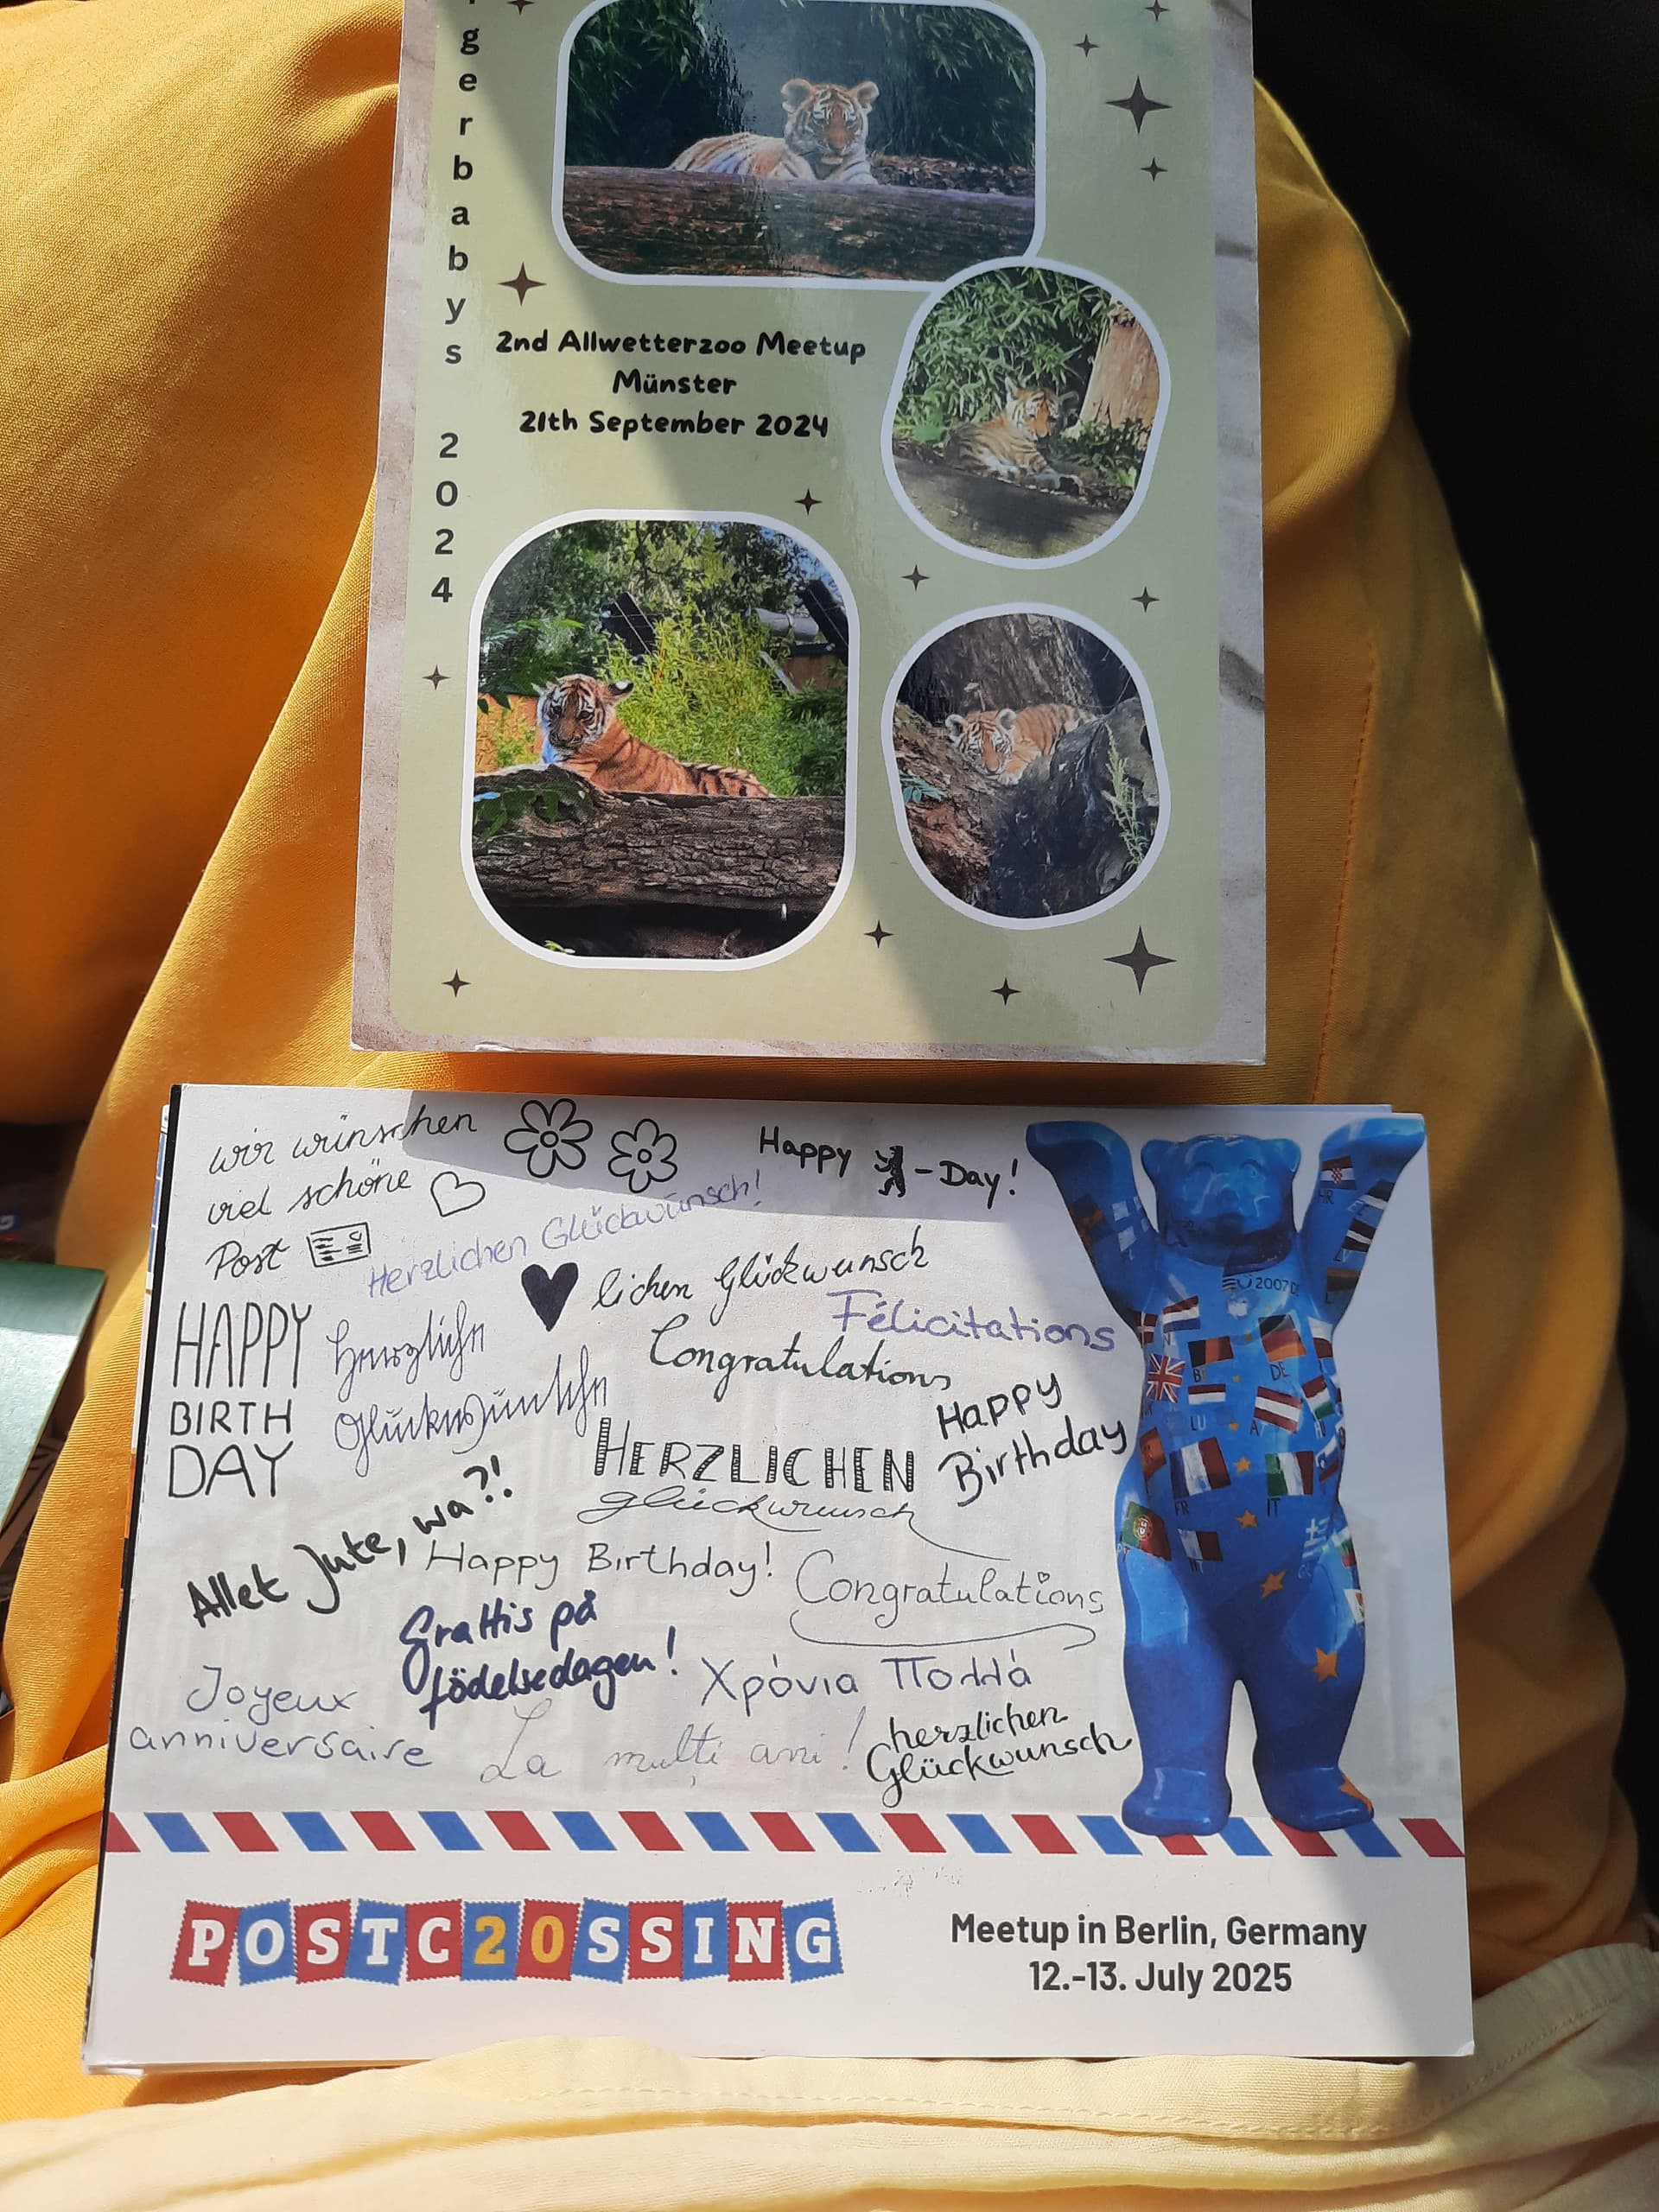 gerbabys 2024
2nd Allwetterzoo Meetup
Münster
21th September 2024
wir wünschen
viel schöne
Post
Happy -Day!
Herzlichen Glückwünsch!
lichen Glückwunsch
Félicitations
HAPPY
BIRTH
DAY
Herzliche
Glückwünsche
Congratulations
Happy
Birthday
HERZLICHEN
glückwunsch
Allet Jute, wa?!
Happy Birthday!
Congratulations
Grattis på
födelsedagen!
Χρόνια Πολλά
Joyeux
anniversaire
La mulți ani!
herzlichen
Glückwunsch
EU 2007
DE
LU
A
FR
IT
POSTC20SSING
Meetup in Berlin, Germany
12.-13. July 2025